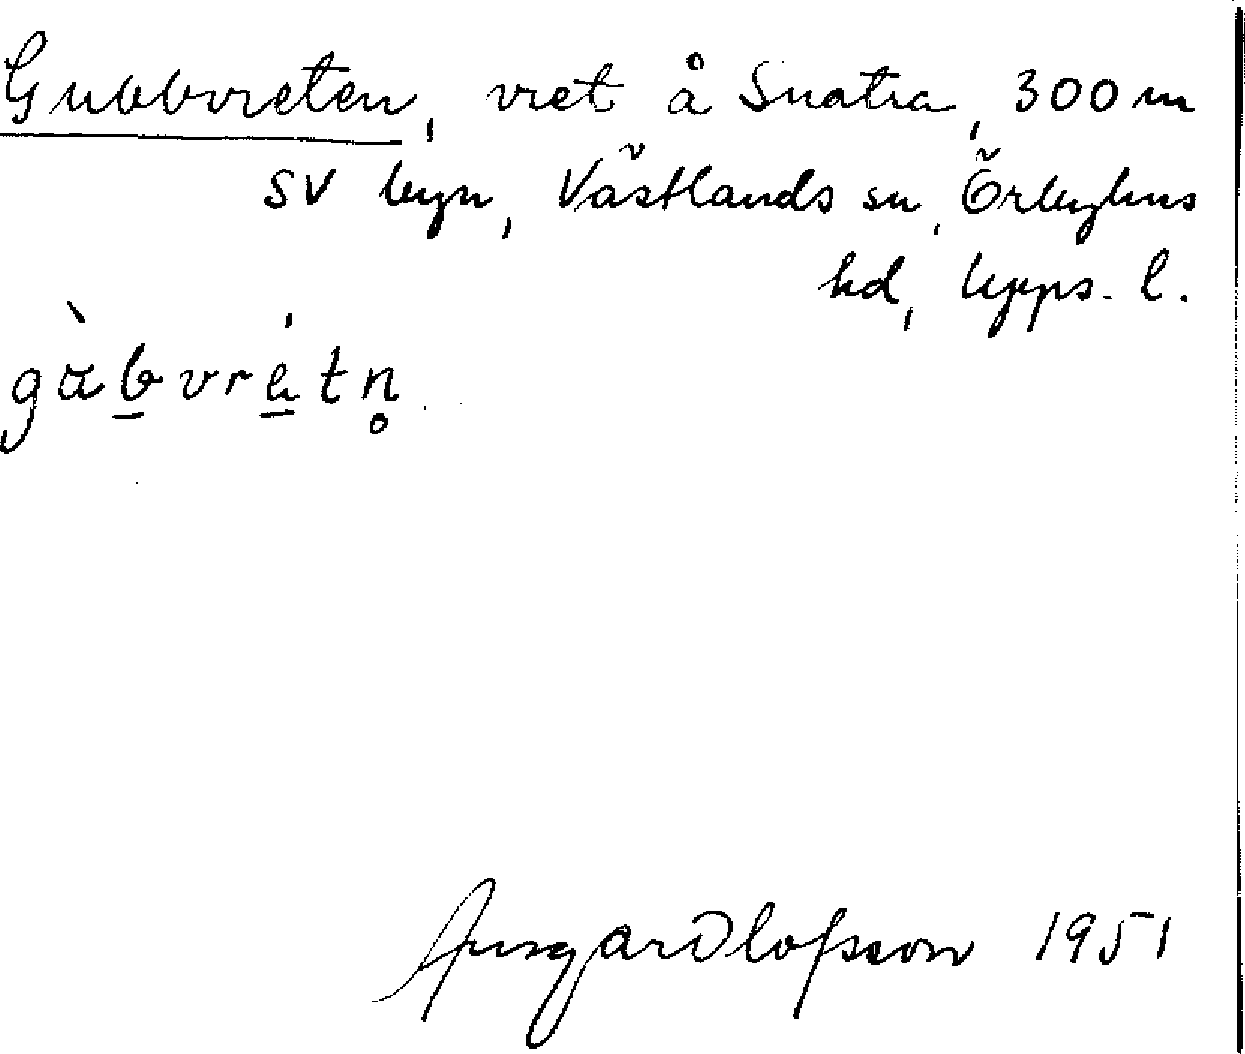 Gubbvreten, vret å Snatra, 300 m
SV byn, Västlands sn, Örbyhus
hd, Upps. l.
gàb̲vré̲tn̥
Ansgar Olofsson 1951